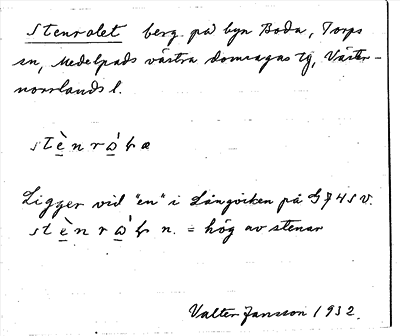 Stenralet berg på byn Boda, Torps
sn, Medelpads västra domsagas tg, Väster-
norrlands l.
Ligger vid "en" i Långviken på G 7 4 S V.
n. = hög av stenar
Valter Jansson 1932.